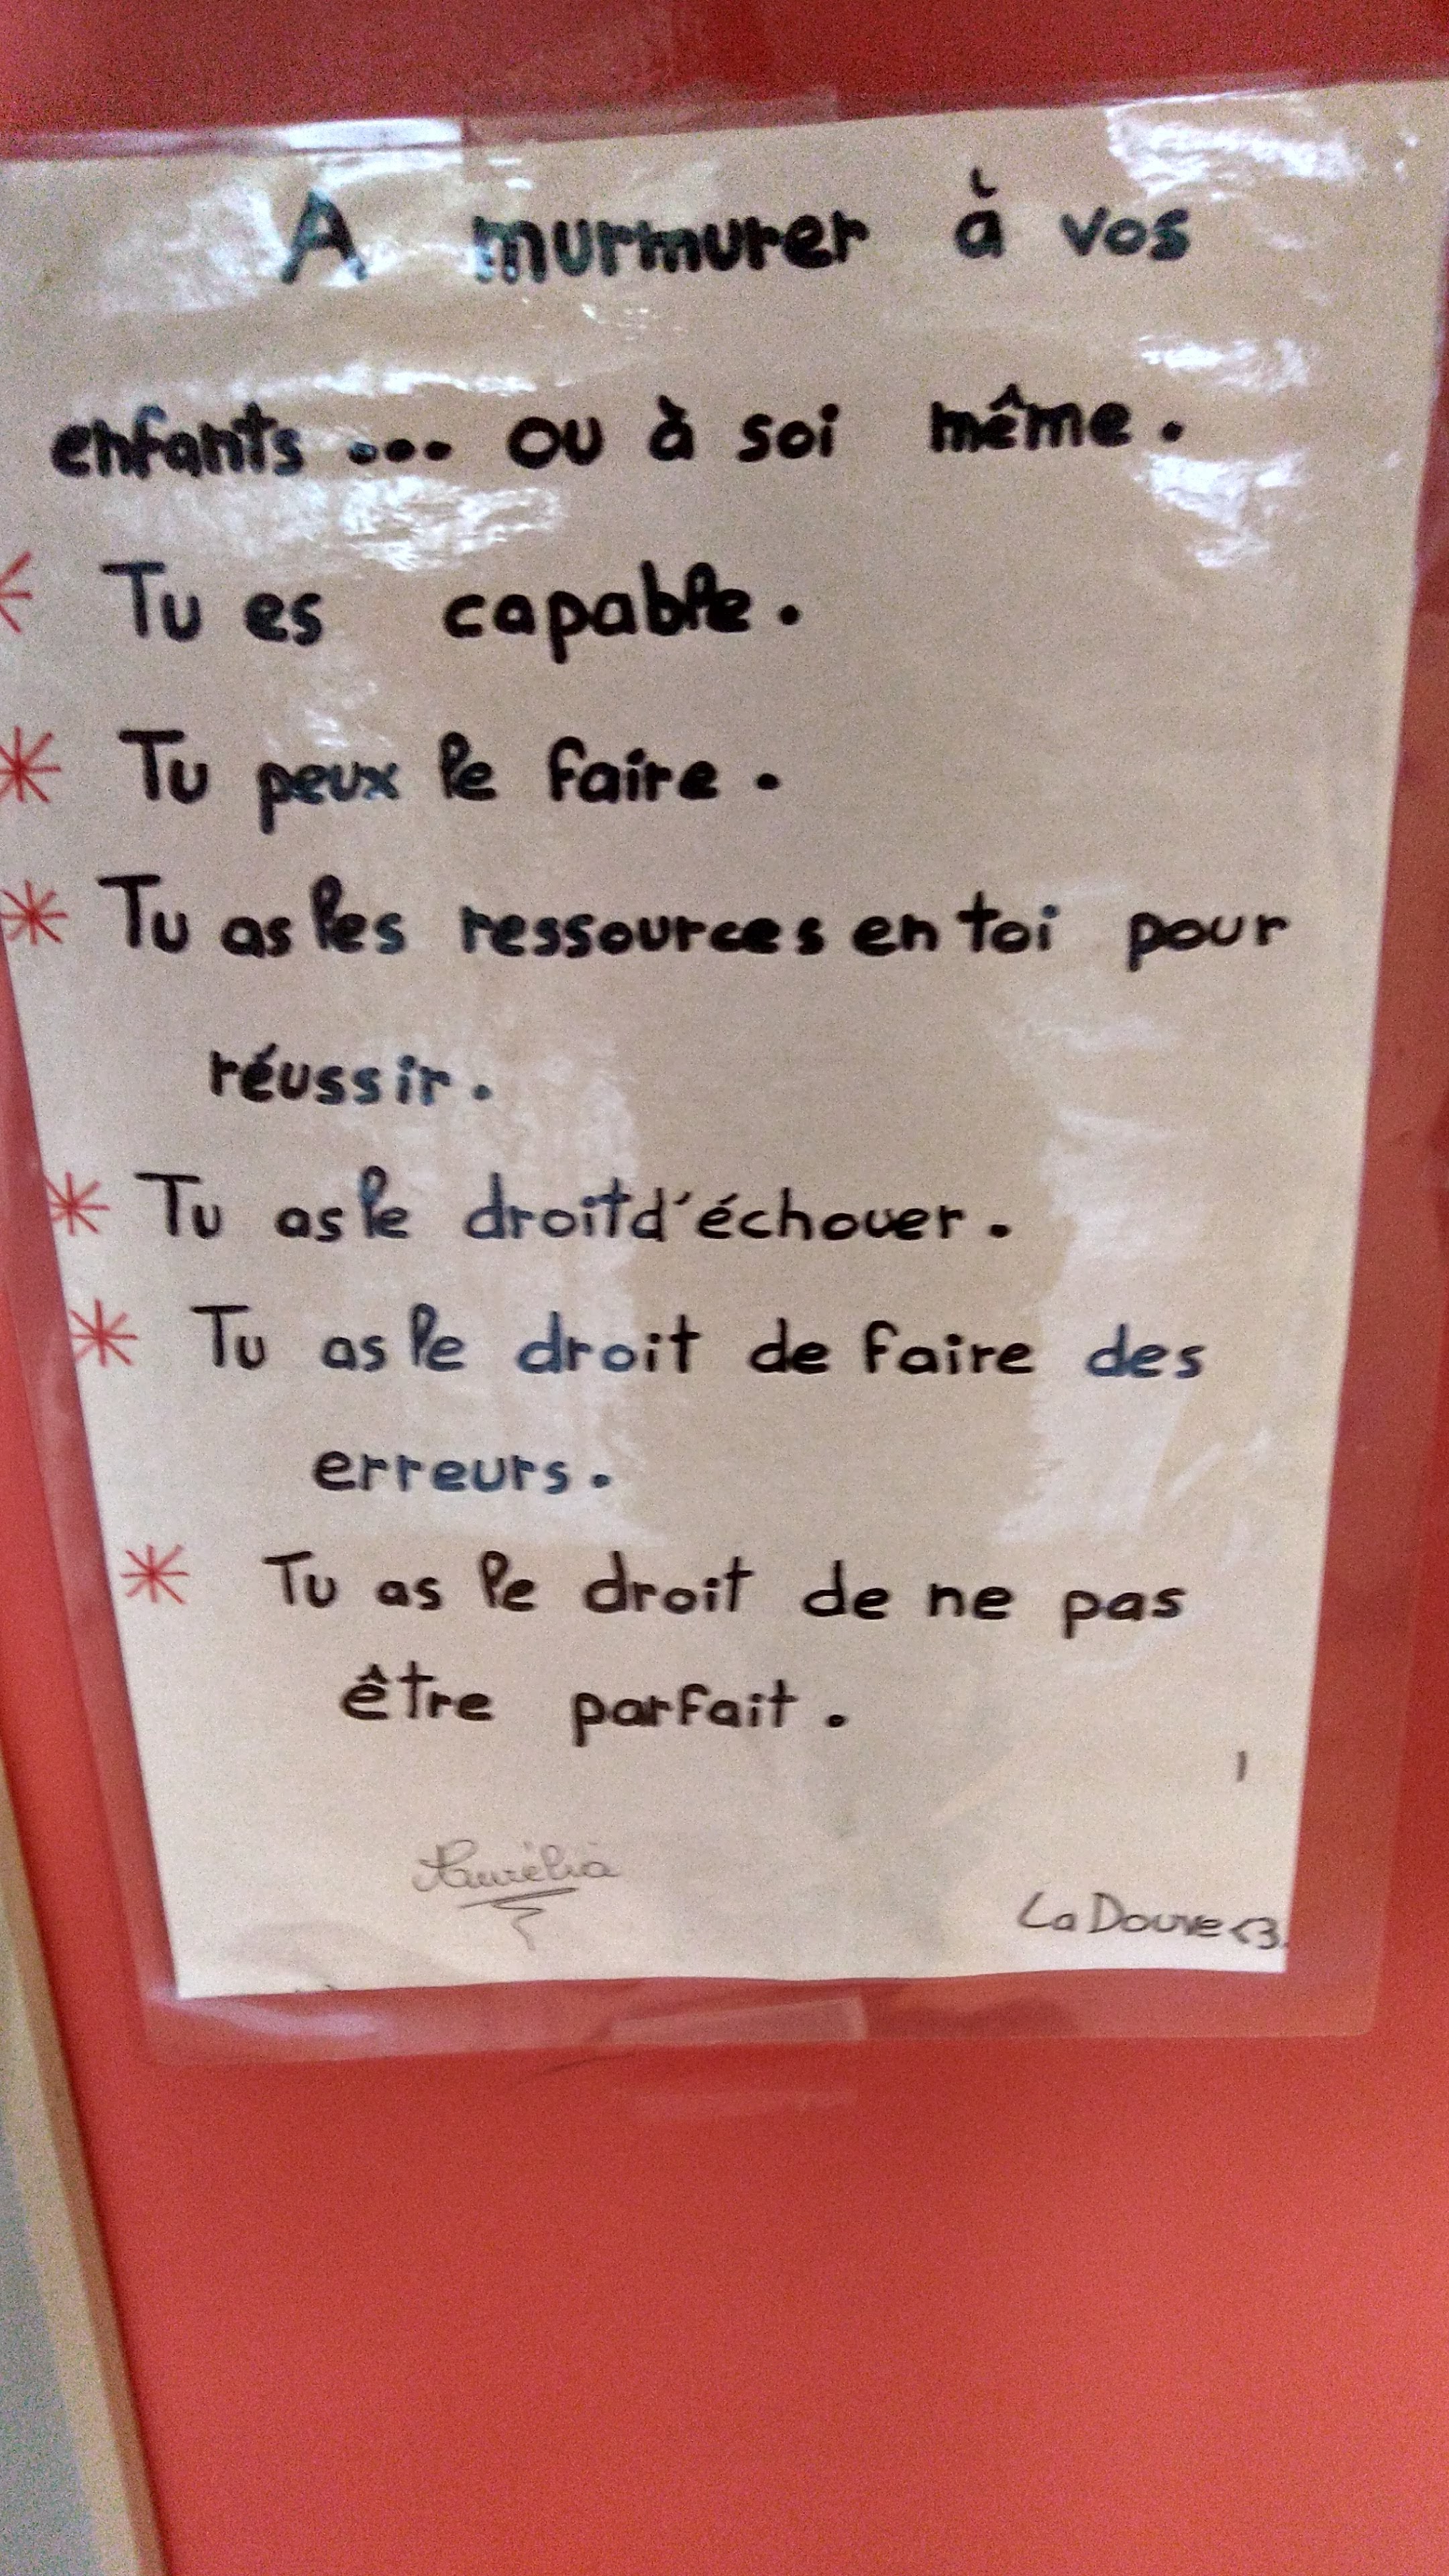 A murmurer à vos
enfants ... ou à soi même.
* Tu es capable.
* Tu peux le faire.
* Tu as les ressources en toi pour
réussir.
* Tu as le droit d'échouer.
* Tu as le droit de faire des
erreurs.
* Tu as le droit de ne pas
être parfait.
Aurélia
La Douve <3.